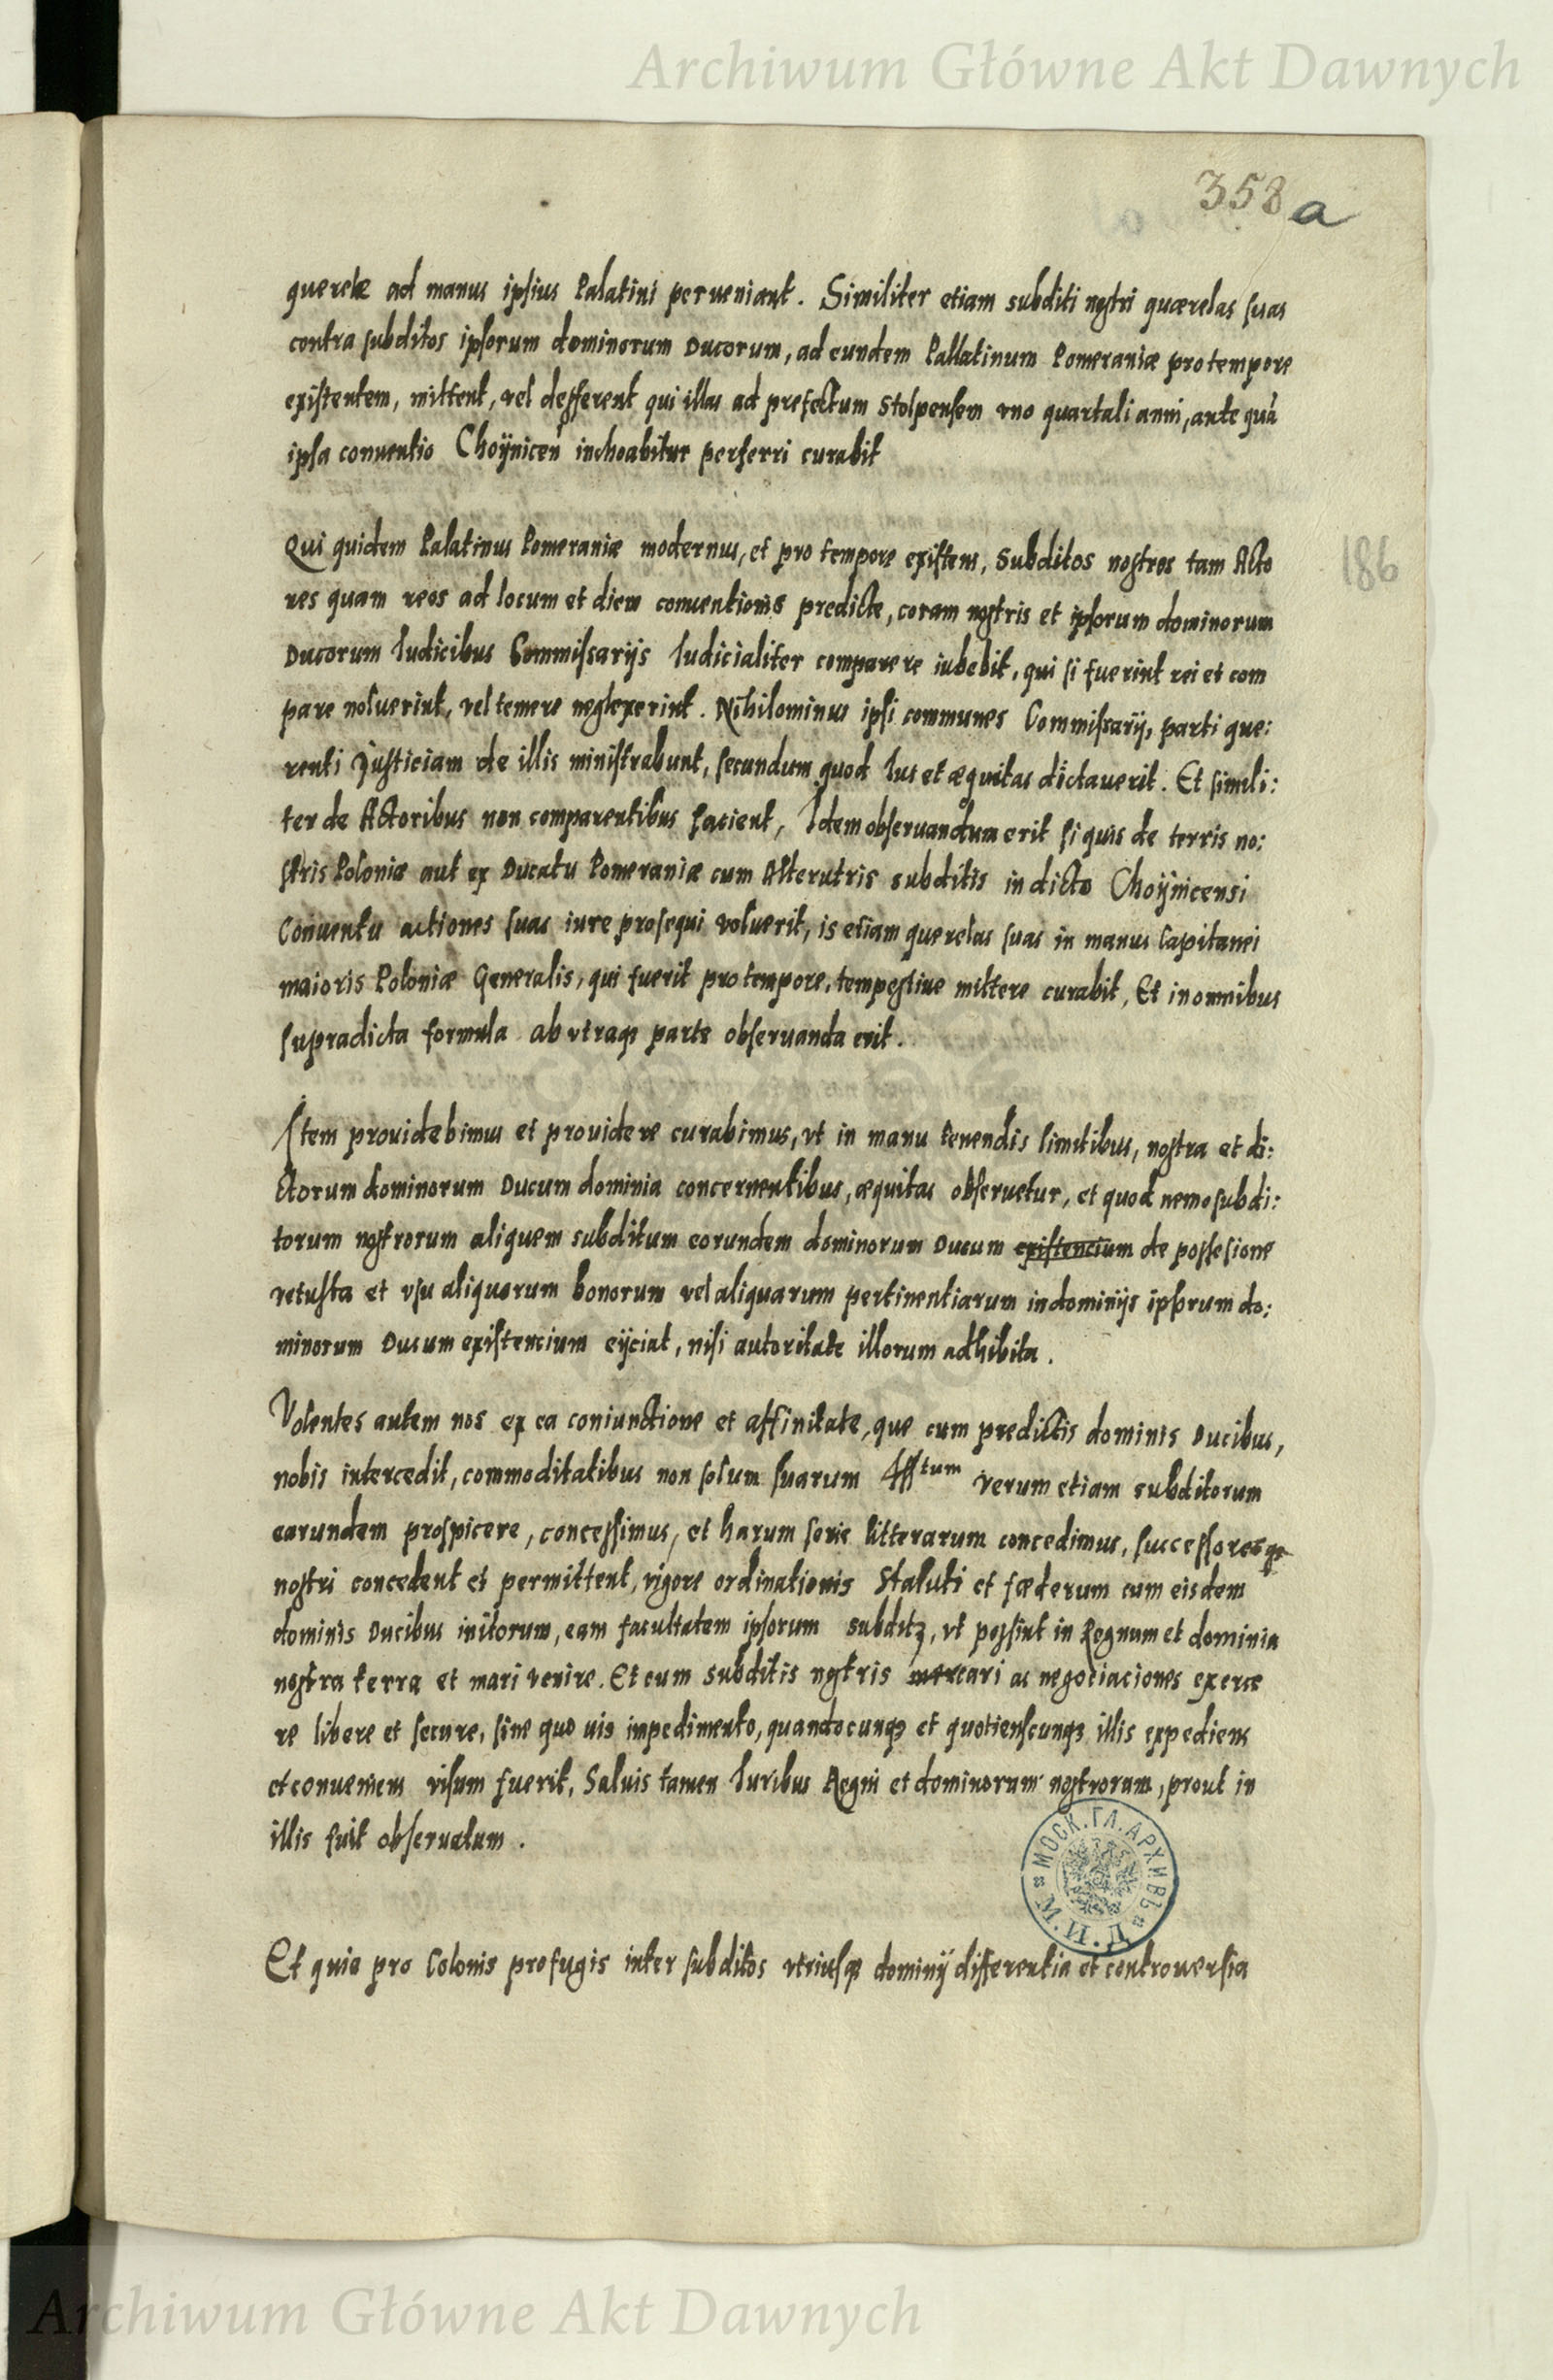 Archiwum Główne Akt Dawnych
358 a
querelæ ad manus ipsius Palatini perueniant. Similiter etiam subditi nostri quærelas suas
contra subditos ipsorum dominorum Ducorum, ad eundem Pallatinum Pomeraniæ pro tempore
existentem, mittent, vel defferent qui illas ad prefectum Stolpensem vno quartali anni, ante quã
ipsa conuentio Choÿnicen̄ inchoabitur perferri curabit
Qui quidem Palatinus Pomeraniæ modernus, et pro tempore existens, Subditos nostros tam Acto
res quam reos ad locum et diem conuentionis predicte, coram nostris et ipsorum dominorum
Ducorum Iudicibus Commissarijs Iudicialiter comparere iubebit, qui si fuerint rei et com
pare noluerint, vel temere neglexerint. Nihilominus ipsi communes Commissarij, parti que:
renti Justiciam de illis ministrabunt, secundum quod Ius et æquitas dictauerit. Et simili:
ter de Actoribus non comparentibus facient, Idem obseruandum erit si quis de terris no:
stris Poloniæ aut ex Ducatu Pomeraniæ cum Alterutris subditis in dicto Choÿnicensi
Conuentu actiones suas iure prosequi voluerit, is etiam querelas suas in manus Capitanei
maioris Poloniæ Generalis, qui fuerit pro tempore, tempestiue mittere curabit, Et in omnibus
supradicta formula ab vtraqȝ parte obseruanda erit.
186
Item prouidebimus et prouidere curabimus, vt in manu tenendis limitibus, nostra et di:
ctorum dominorum Ducum dominia concernentibus, æquitas obseruetur, et quod nemo subdi:
torum nostrorum aliquem subditum eorundem dominorum Ducum existencium de possesione
vetusta et vsu aliquorum bonorum vel aliquarum pertinentiarum in dominijs ipsorum do:
minorum Ducum existencium eijciat, nisi autoritate illorum adhibita.
Volentes autem nos ex ea coniunctione et affinitate, que cum predictis dominis Ducibus,
nobis intercedit, commoditatibus non solum suarum Illstum verum etiam subditorum
earundem prospicere, concessimus, et harum serie litterarum concedimus, successoresqȝ
nostri concedent et permittent, vigore ordinationis Statuti et fœderum cum eisdem
dominis Ducibus initorum, eam facultatem ipsorum subditȝ, vt possint in Regnum et dominia
nostra terra et mari venire. Et cum subditis nostris mercari ac negociaciones exerce
re libere et secure, sine quo uis impedimento, quandocunqȝ et quotienscunqȝ illis expediens
et conueniens visum fuerit, Saluis tamen Iuribus Regni et dominorum nostrorum, prout in
illis fuit obseruatum.
МОСК. ГЛ. АРХИВЪ
М. И. Д.
Et quia pro Colonis profugis inter subditos vtriusqȝ dominij differentia et controuersia
Archiwum Główne Akt Dawnych